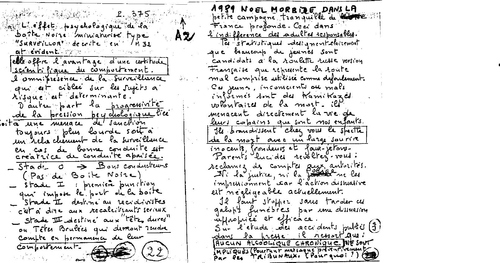 2. 375
L'effet psychologique de la
boîte Noire miniaturisée type
"SURVEILLOR" décrite en n° 32
est évident.
elle offre l'avantage d'une certitude
scientifique du comportement.
L'omniprésence de la surveillance
qui est ciblée sur les sujets à
risque est déterminante.
D'autre part la progressivité
de la pression psychologique liée
à une menace de sanction
toujours plus lourde soit à
un relâchement de la surveillance
en cas de bonne conduite est
créatrice de conduite apaisée.
- Stade 0 → Bons conducteurs
(Pas de Boîte Noire)
- Stade I : première punition
qui impose le port de la boîte
- Stade II destiné aux récidivistes
c'est à dire aux récalcitrants sérieux
- Stade III destiné aux "têtes dures"
ou Têtes Brulées qui devront rendre
compte en permanence de leur
comportement.
22
A2
1989 NOEL MORBIDE DANS LA
petite campagne tranquille de
France profonde. Ceci dans
l'indifférence des adultes responsables.
Les statistiques désignent clairement
que beaucoup de jeunes sont
candidats à la roulette russe version
Française que représente la route
mal comprise utilisée comme défoulement.
Ces jeunes, inconscients ou mal
informés sont des Kamikazes
volontaires de la mort. ils
menacent directement la vie de
leurs copains qui sont nos enfants.
Ils brandissent chez vous le spectre
de la mort avec un large sourire
innocents, frondeurs et
Parents lucides révoltez-vous :
réclamez des comptes aux autorités.
Ni la justice, ni la police ne les
impressionnent car l'action dissuasive
est négligeable actuellement.
Il faut stopper sans tarder ces
galops funèbres par une dissuasion
appropriée et efficace.
Sur l'étude des accidents publiés
dans la presse il ressort que :
AUCUN ALCOOLIQUE CHRONIQUE NE SONT
IMPLIQUÉS
PAR LES TRIBUNAUX (Pourquoi ?)